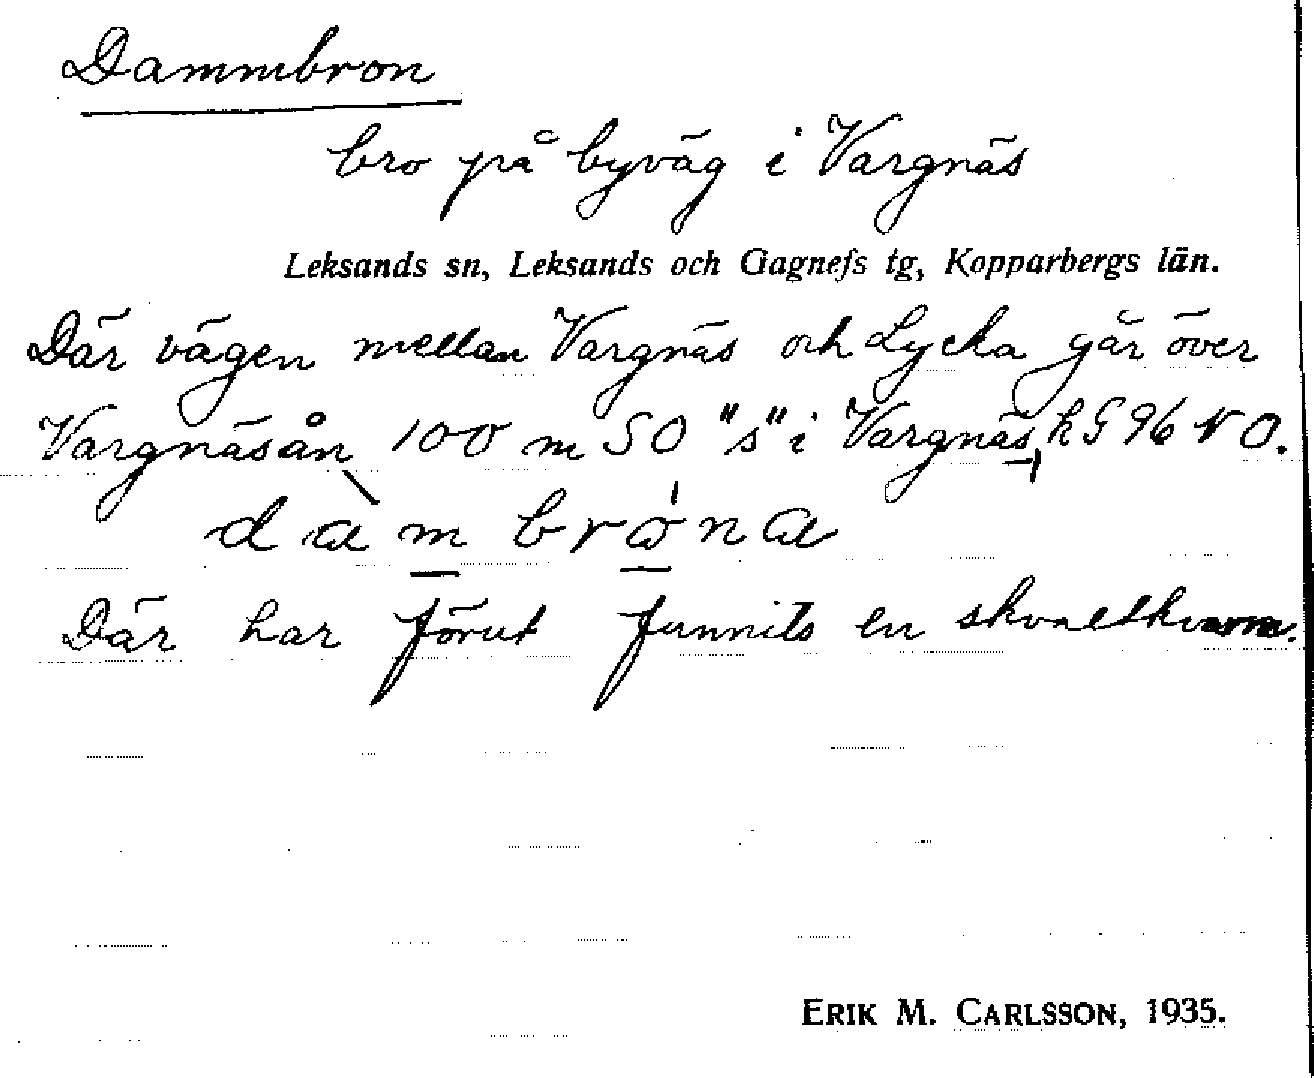 Dammbron
bro på byväg i Vargnäs
Leksands sn, Leksands och Gagnefs tg, Kopparbergs län.
Där vägen mellan Vargnäs och Lycka går över
Vargnäsån 100 m SO "s" i Vargnäs, kS 96 NO.
dàm brὼna
Där har förut funnits en skvaltkvarn.
ERIK M. CARLSSON, 1935.